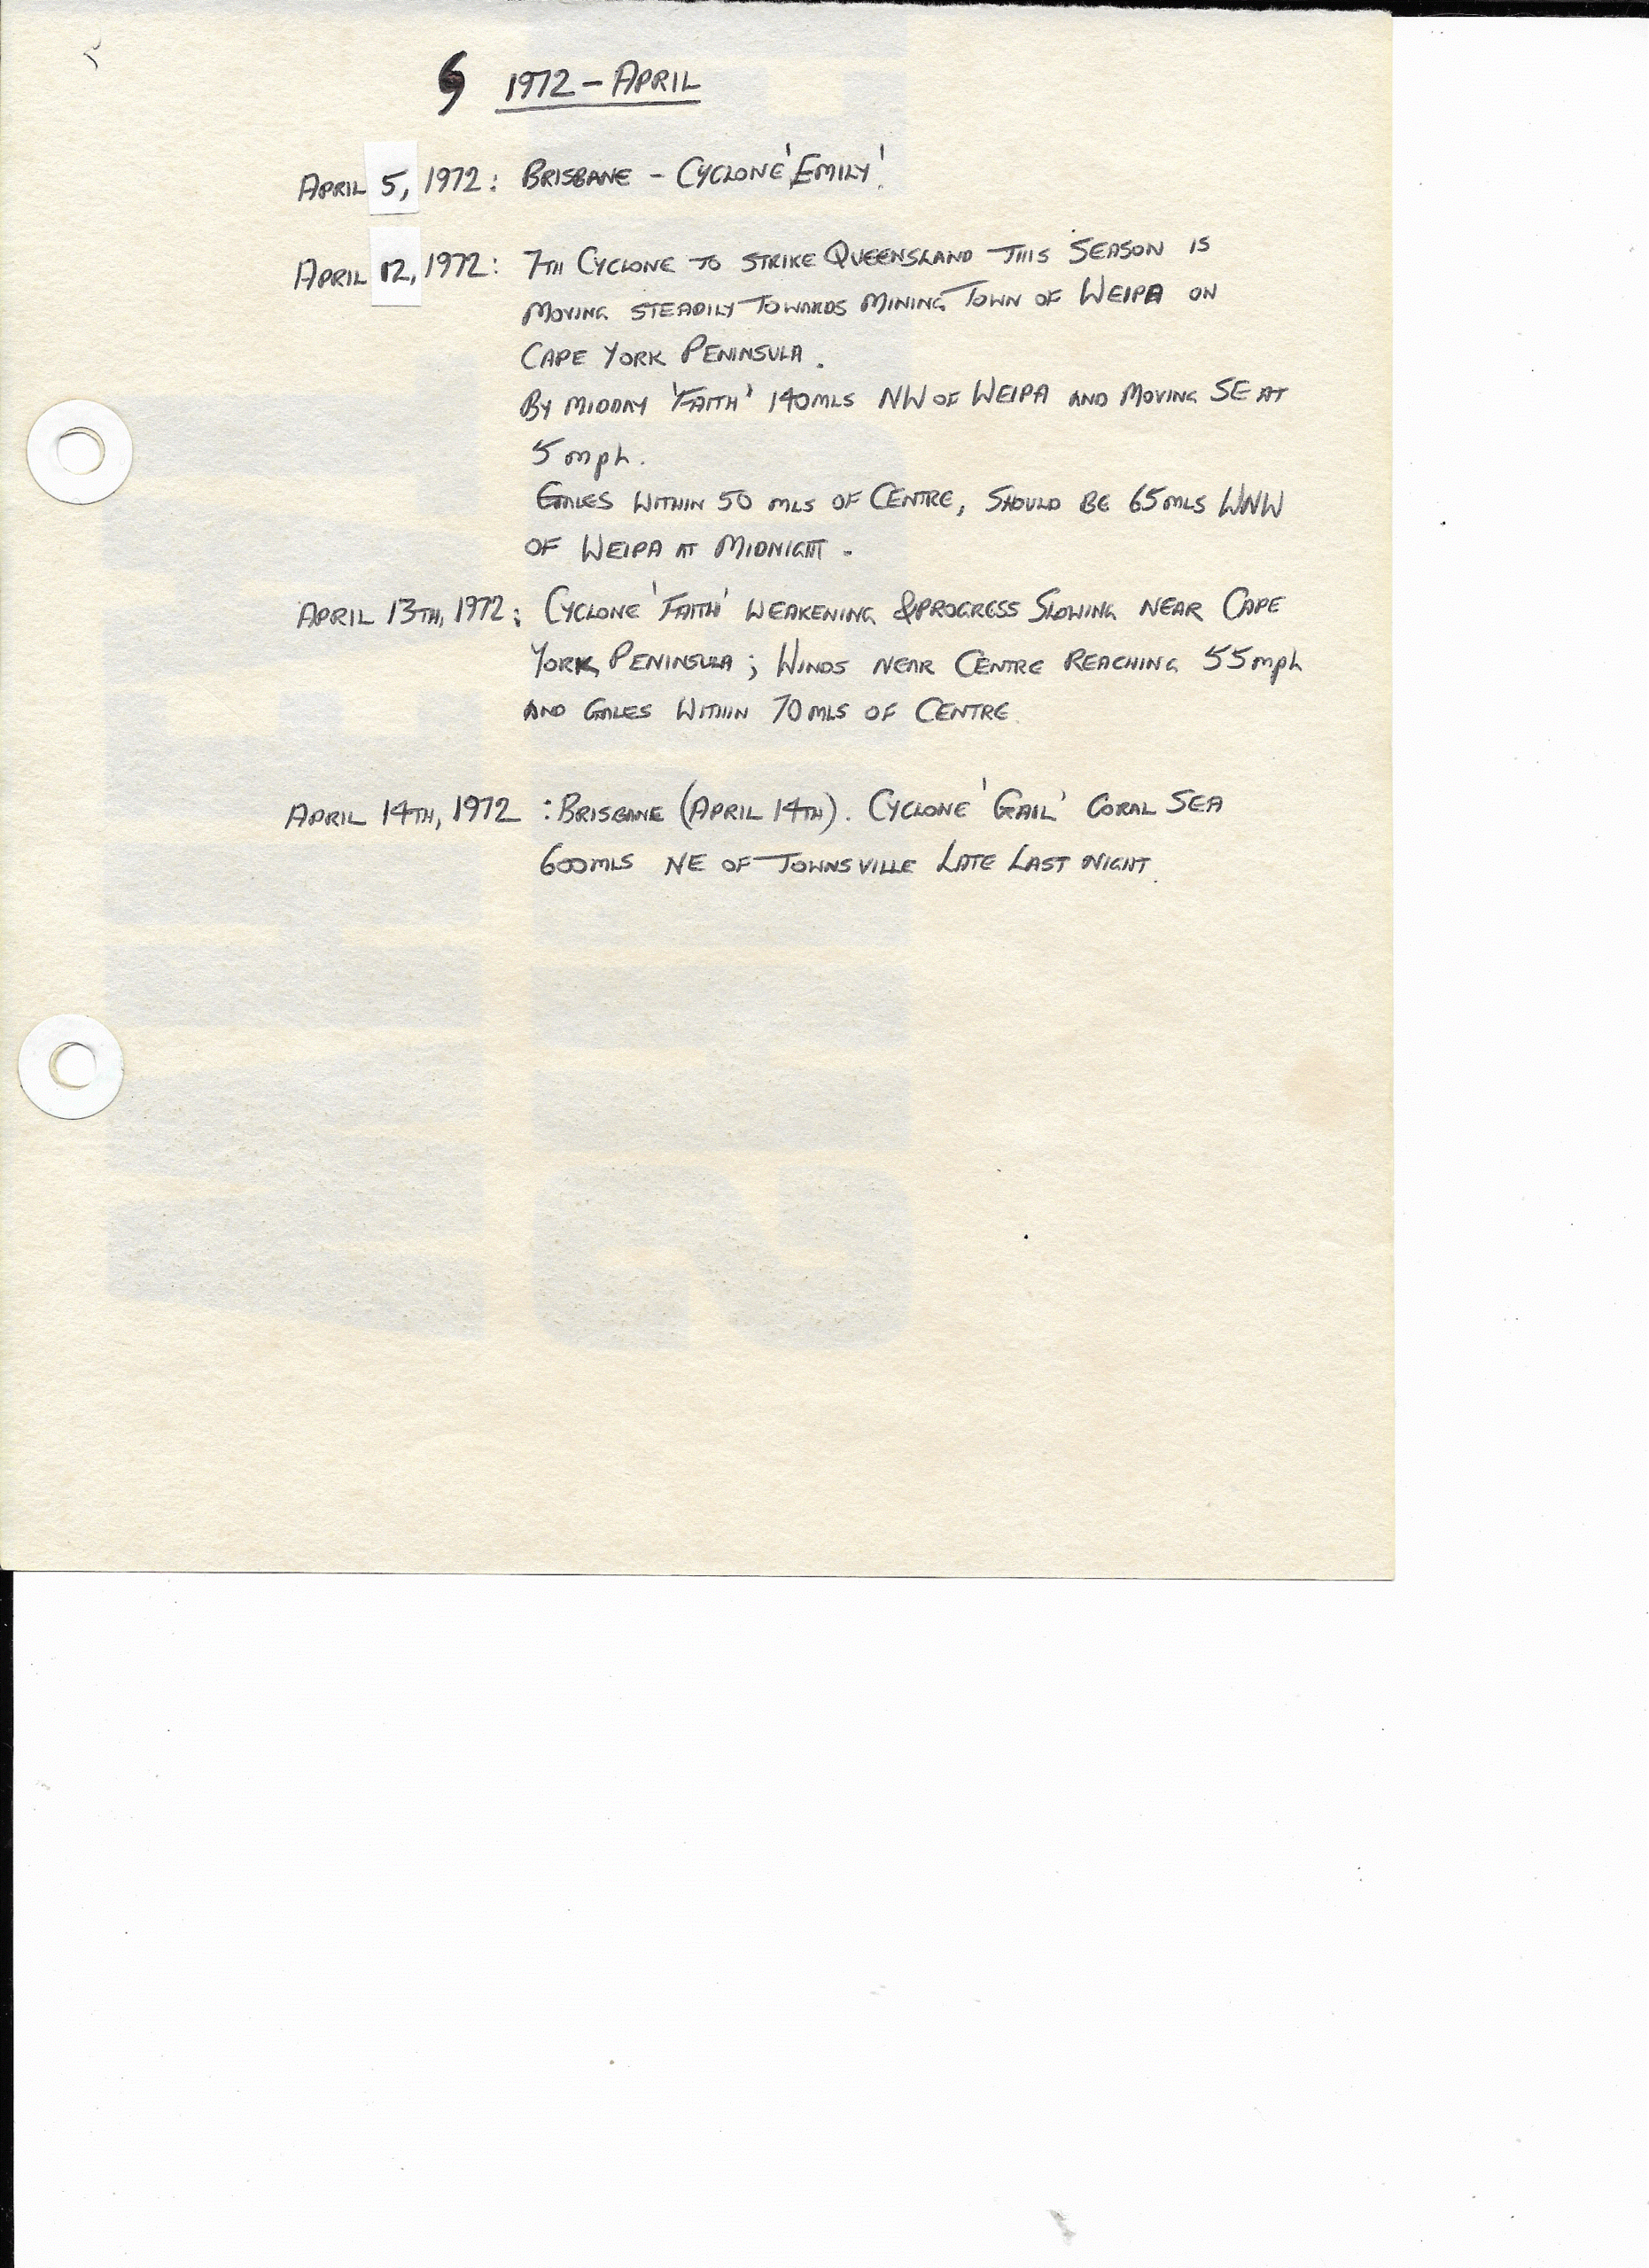 1972 – APRIL
APRIL 5, 1972: BRISBANE – CYCLONE 'EMILY'.
APRIL 12, 1972: 7TH CYCLONE TO STRIKE QUEENSLAND THIS SEASON IS
MOVING STEADILY TOWARDS MINING TOWN OF WEIPA ON
CAPE YORK PENINSULA.
BY MIDDAY 'FAITH' 140MLS NW OF WEIPA AND MOVING SE AT
5 mph.
GALES WITHIN 50 MLS OF CENTRE, SHOULD BE 65MLS WNW
OF WEIPA AT MIDNIGHT.
APRIL 13TH, 1972: CYCLONE 'FAITH' WEAKENING & PROGRESS SLOWING NEAR CAPE
YORK PENINSULA; WINDS NEAR CENTRE REACHING 55mph
AND GALES WITHIN 70MLS OF CENTRE.
APRIL 14TH, 1972 : BRISBANE (APRIL 14TH). CYCLONE 'GAIL' CORAL SEA
600MLS NE OF TOWNSVILLE LATE LAST NIGHT.